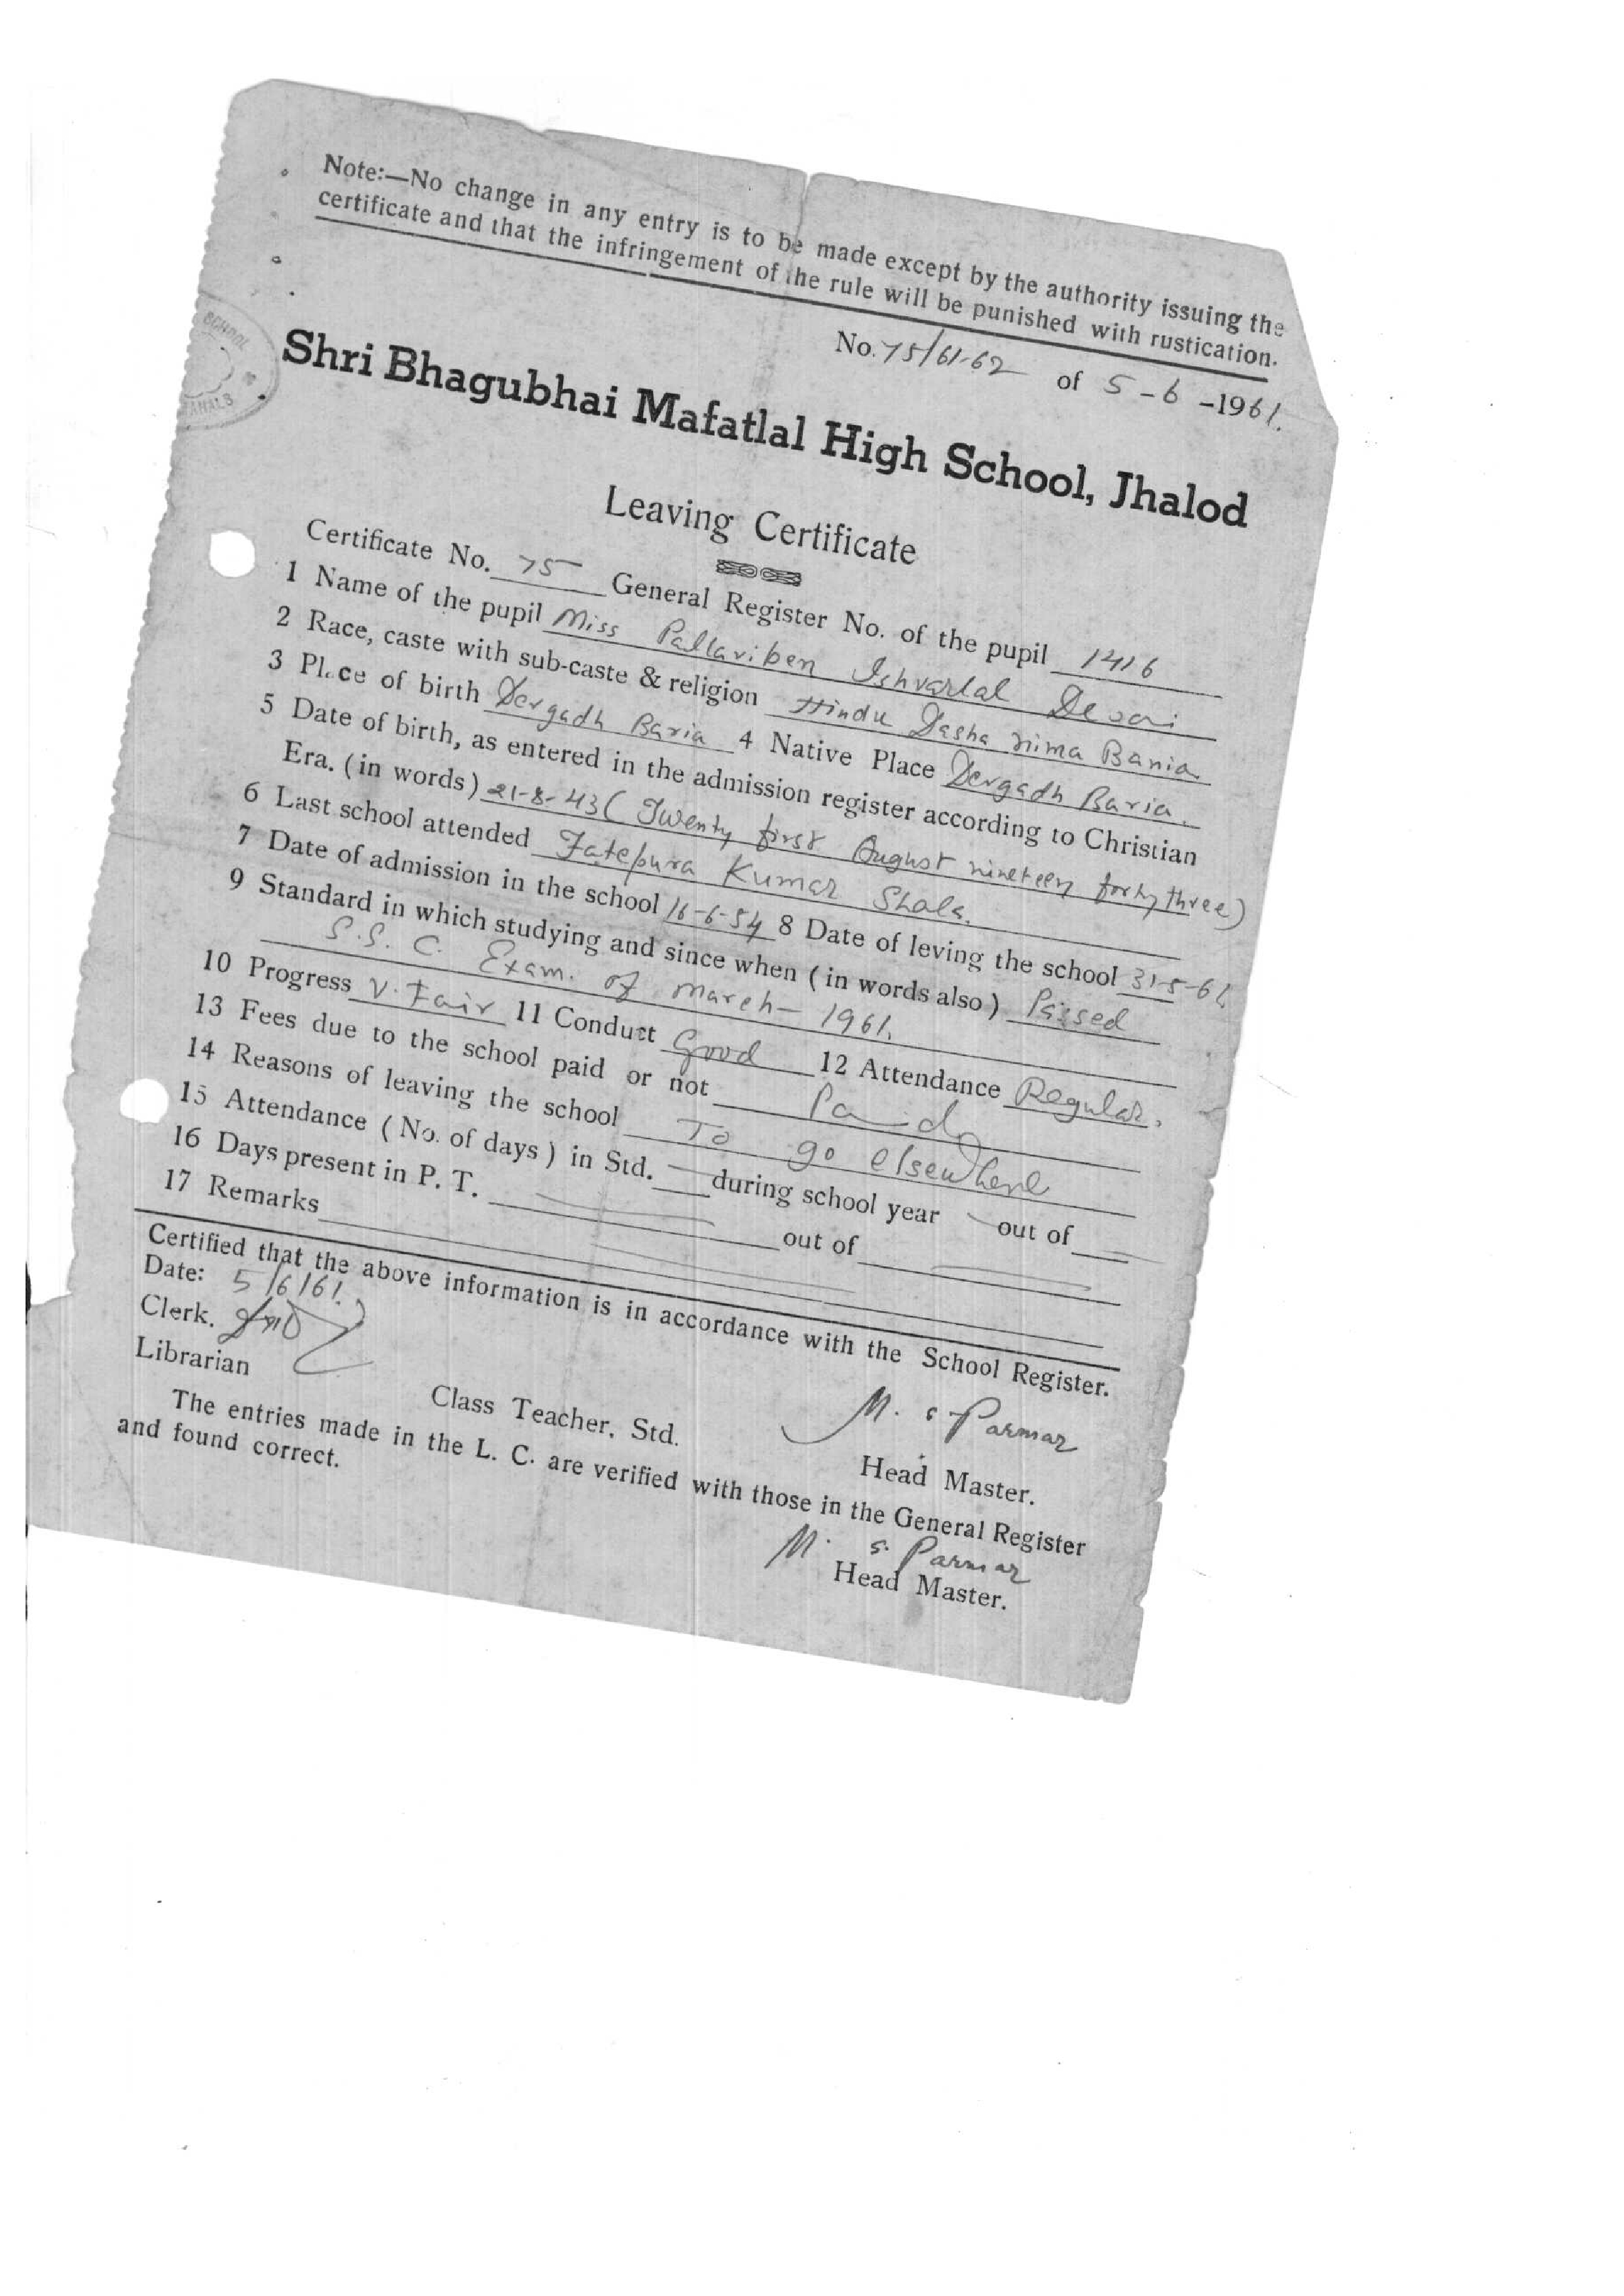 Note:—No change in any entry is to be made except by the authority issuing the
certificate and that the infringement of the rule will be punished with rustication.
No. 75/61-62 of 5-6-1961.
SCHOOL
Shri Bhagubhai Mafatlal High School, Jhalod
Leaving Certificate
Certificate No. 75 General Register No. of the pupil 1416
1 Name of the pupil Miss Pallaviben Ishvarlal Desai
2 Race, caste with sub-caste & religion Hindu Dasha nima Bania.
3 Place of birth Devgadh Baria 4 Native Place Devgadh Baria.
5 Date of birth, as entered in the admission register according to Christian
Era. (in words) 21-8-43 (Twenty first August nineteen forty three)
6 Last school attended Fatepura Kumar Shala.
7 Date of admission in the school 16-6-54 8 Date of leving the school 31-5-61.
9 Standard in which studying and since when (in words also) Passed
S.S.C. Exam. of march- 1961.
10 Progress V. Fair 11 Conduct Good 12 Attendance Regular.
13 Fees due to the school paid or not Paid
14 Reasons of leaving the school To go elsewhere
15 Attendance (No. of days) in Std. — during school year — out of —
16 Days present in P. T. out of
17 Remarks
Certified that the above information is in accordance with the School Register.
Date: 5/6/61.
Clerk.
Librarian
Class Teacher, Std.
M. S. Parmar
Head Master.
The entries made in the L. C. are verified with those in the General Register
and found correct.
M. S. Parmar
Head Master.